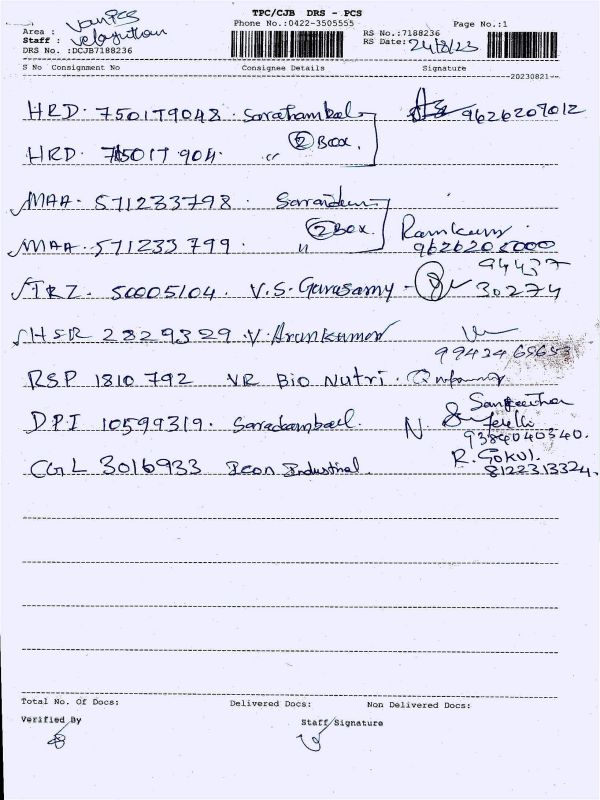 TPC/CJB DRS - PCS
Phone No.:0422-3505555 Page No.:1
Area : Van PCS
Staff : Velayuthan
DRS No. :DCJB7188236
RS No.:7188236
RS Date: 24/8/23
S No Consignment No Consignee Details Signature
--20230821--
HRD. 750179048 . Sarathambal 9626209012
HRD. 75017904. " (2) Box.
MAA. 571233798
MAA. 571233799. " (2) Box. Ramkumar
9626205000
TRZ. 50005104. V.S. Gurusamy - 94437
30274
HSR 2829329 . V. Arunkumar
99424 65653
RSP 1810792 VR Bio Nutri .
DPI 10599319. Saradambal N. Sangeetha
9384040340.
CGL 3016933 Icon Industrial. R. Gokul.
8122313324.
Total No. Of Docs: Delivered Docs: Non Delivered Docs:
Verified By Staff Signature